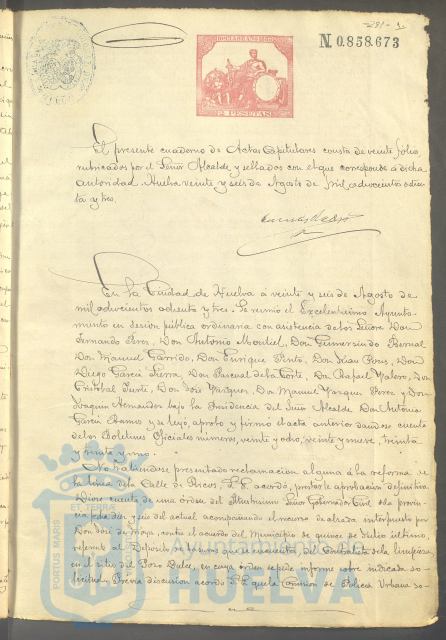 281-1
N.0.858.673
2 PESETAS
El presente cuaderno de Actas Capitulares consta de veinte folios
rubricados por el Señor Alcalde y sellados con el que corresponde a dicha
autoridad. Huelva veinte y seis de Agosto de mil ochocientos ochen-
ta y tres.
En la Ciudad de Huelva a veinte y seis de Agosto de
mil ochocientos ochenta y tres. Se reunió el Excelentísimo Ayunta-
miento en sesion pública ordinaria con asistencia de los Señores Don
Fernando Peres, Don Antonio Montiel, Don Gumersindo Bernal
Don Manuel Garrido, Don Enrique Pinto, Don Juan Pons, Don
Diego Garcia Sierra, Don Pascual de la Corte, Don Rafael Valero, Don
Cristobal Don José Vazquez, Don Manuel Vazquez Perez y Don
Joaquin Hernandez bajo la Presidencia del Señor Alcalde Don Antonio
Garcia Ramos y se leyó, aprobó y firmó el acta anterior dandose cuenta
de los Boletines Oficiales números, veinte y ocho, veinte y nueve, treinta
y treinta y uno.
No habiendose presentado reclamacion alguna á la reforma de
la linea de la Calle de Ricos, S.E. acordó, prestarle aprobacion definitiva
Diose cuenta de una órden del Ilustrisimo Señor Gobernador Civil de la provin-
cia fecha diez y seis del actual acompañando el recurso de alzada interpuesto por
Don José de Moya, contra el acuerdo del Municipio de quince de Julio último,
referente al Depósito de basuras que el Contratista de la limpieza
en el sitio del Pozo Dulce, en cuya órden se pide informe sobre indicada so-
licitud y Previa discusion acordó S.E. que la Comision de Policia Urbana
PORTUS MARIS
ET TERRAE
Ayuntamiento de
HUELVA